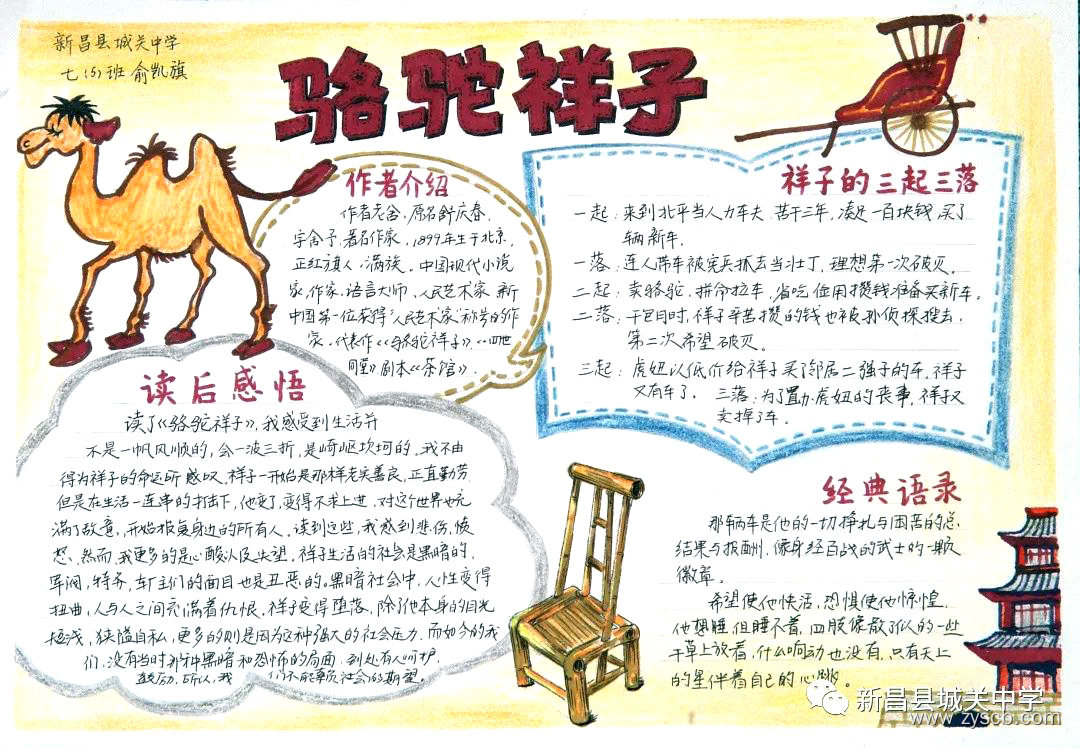 新昌县城关中学
七(5)班 俞凯旗
骆驼祥子
作者介绍
作者老舍,原名舒庆春,
字舍予,著名作家,1899年生于北京,
正红旗人,满族。中国现代小说
家,作家,语言大师,人民艺术家,新
中国第一位获得"人民艺术家"称号的作
家。代表作《骆驼祥子》、《四世
同堂》剧本《茶馆》.
祥子的三起三落
一起:来到北平当人力车夫,苦干三年,凑足一百块钱,买了
辆新车.
一落:连人带车被宪兵抓去当壮丁,理想第一次破灭。
二起:卖骆驼,拼命拉车,省吃俭用攒钱准备买新车。
二落:干包月时,祥子辛苦攒的钱也被孙侦探搜去,
第二次希望破灭。
三起:虎妞以低价给祥子买了邻居二强子的车,祥子
又有车了。 三落:为了置办虎妞的丧事,祥子又
卖掉了车。
读后感悟
读了《骆驼祥子》,我感受到生活并
不是一帆风顺的,会一波三折,是崎岖坎坷的。我不由
得为祥子的命运所感叹,祥子一开始是那样老实善良,正直勤劳
但是在生活一连串的打击下,他变了,变得不求上进,对这个世界也充
满了敌意,开始报复身边的所有人。读到这些,我感到悲伤,愤
怒,然而,我更多的是心酸以及失望。祥子生活的社会是黑暗的,
军阀,特务,车主们的面目也是丑恶的。黑暗社会中,人性变得
扭曲,人与人之间充满着仇恨。祥子变得堕落,除了他本身的目光
短浅,狭隘自私,更多的则是因为这种强大的社会压力,而如今的我
们,没有当时那种黑暗和恐怖的局面,到处有人呵护,
鼓励,所以,我们不能辜负社会的期望。
经典语录
那辆车是他的一切挣扎与困苦的总
结果与报酬,像身经百战的武士的一颗
徽章。
希望使他快活,恐惧使他惊惶,
他想睡,但睡不着,四肢像散了似的一些
干草上放着,什么响动也没有,只有天上
的星伴着自己的心跳。
新昌县城关中学
www.zyscb.com